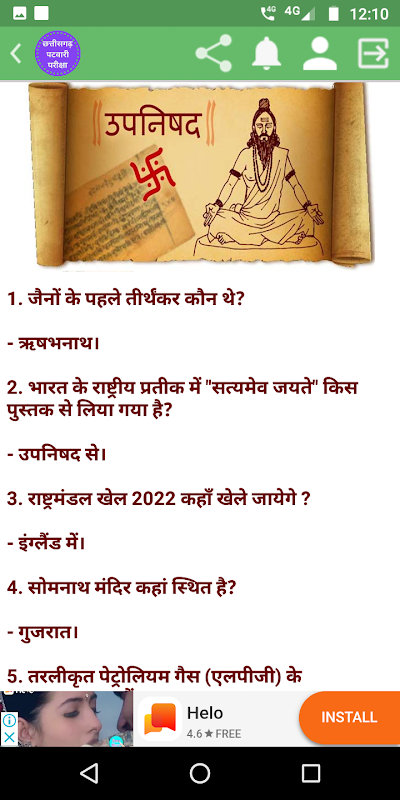 4G 4G 12:10
छत्तीसगढ़
पटवारी
परीक्षा
॥उपनिषद॥
1. जैनों के पहले तीर्थंकर कौन थे?
- ऋषभनाथ।
2. भारत के राष्ट्रीय प्रतीक में "सत्यमेव जयते" किस
पुस्तक से लिया गया है?
- उपनिषद से।
3. राष्ट्रमंडल खेल 2022 कहाँ खेले जायेगे ?
- इंग्लैंड में।
4. सोमनाथ मंदिर कहां स्थित है?
- गुजरात।
5. तरलीकृत पेट्रोलियम गैस (एलपीजी) के
Helo
4.6★FREE
INSTALL